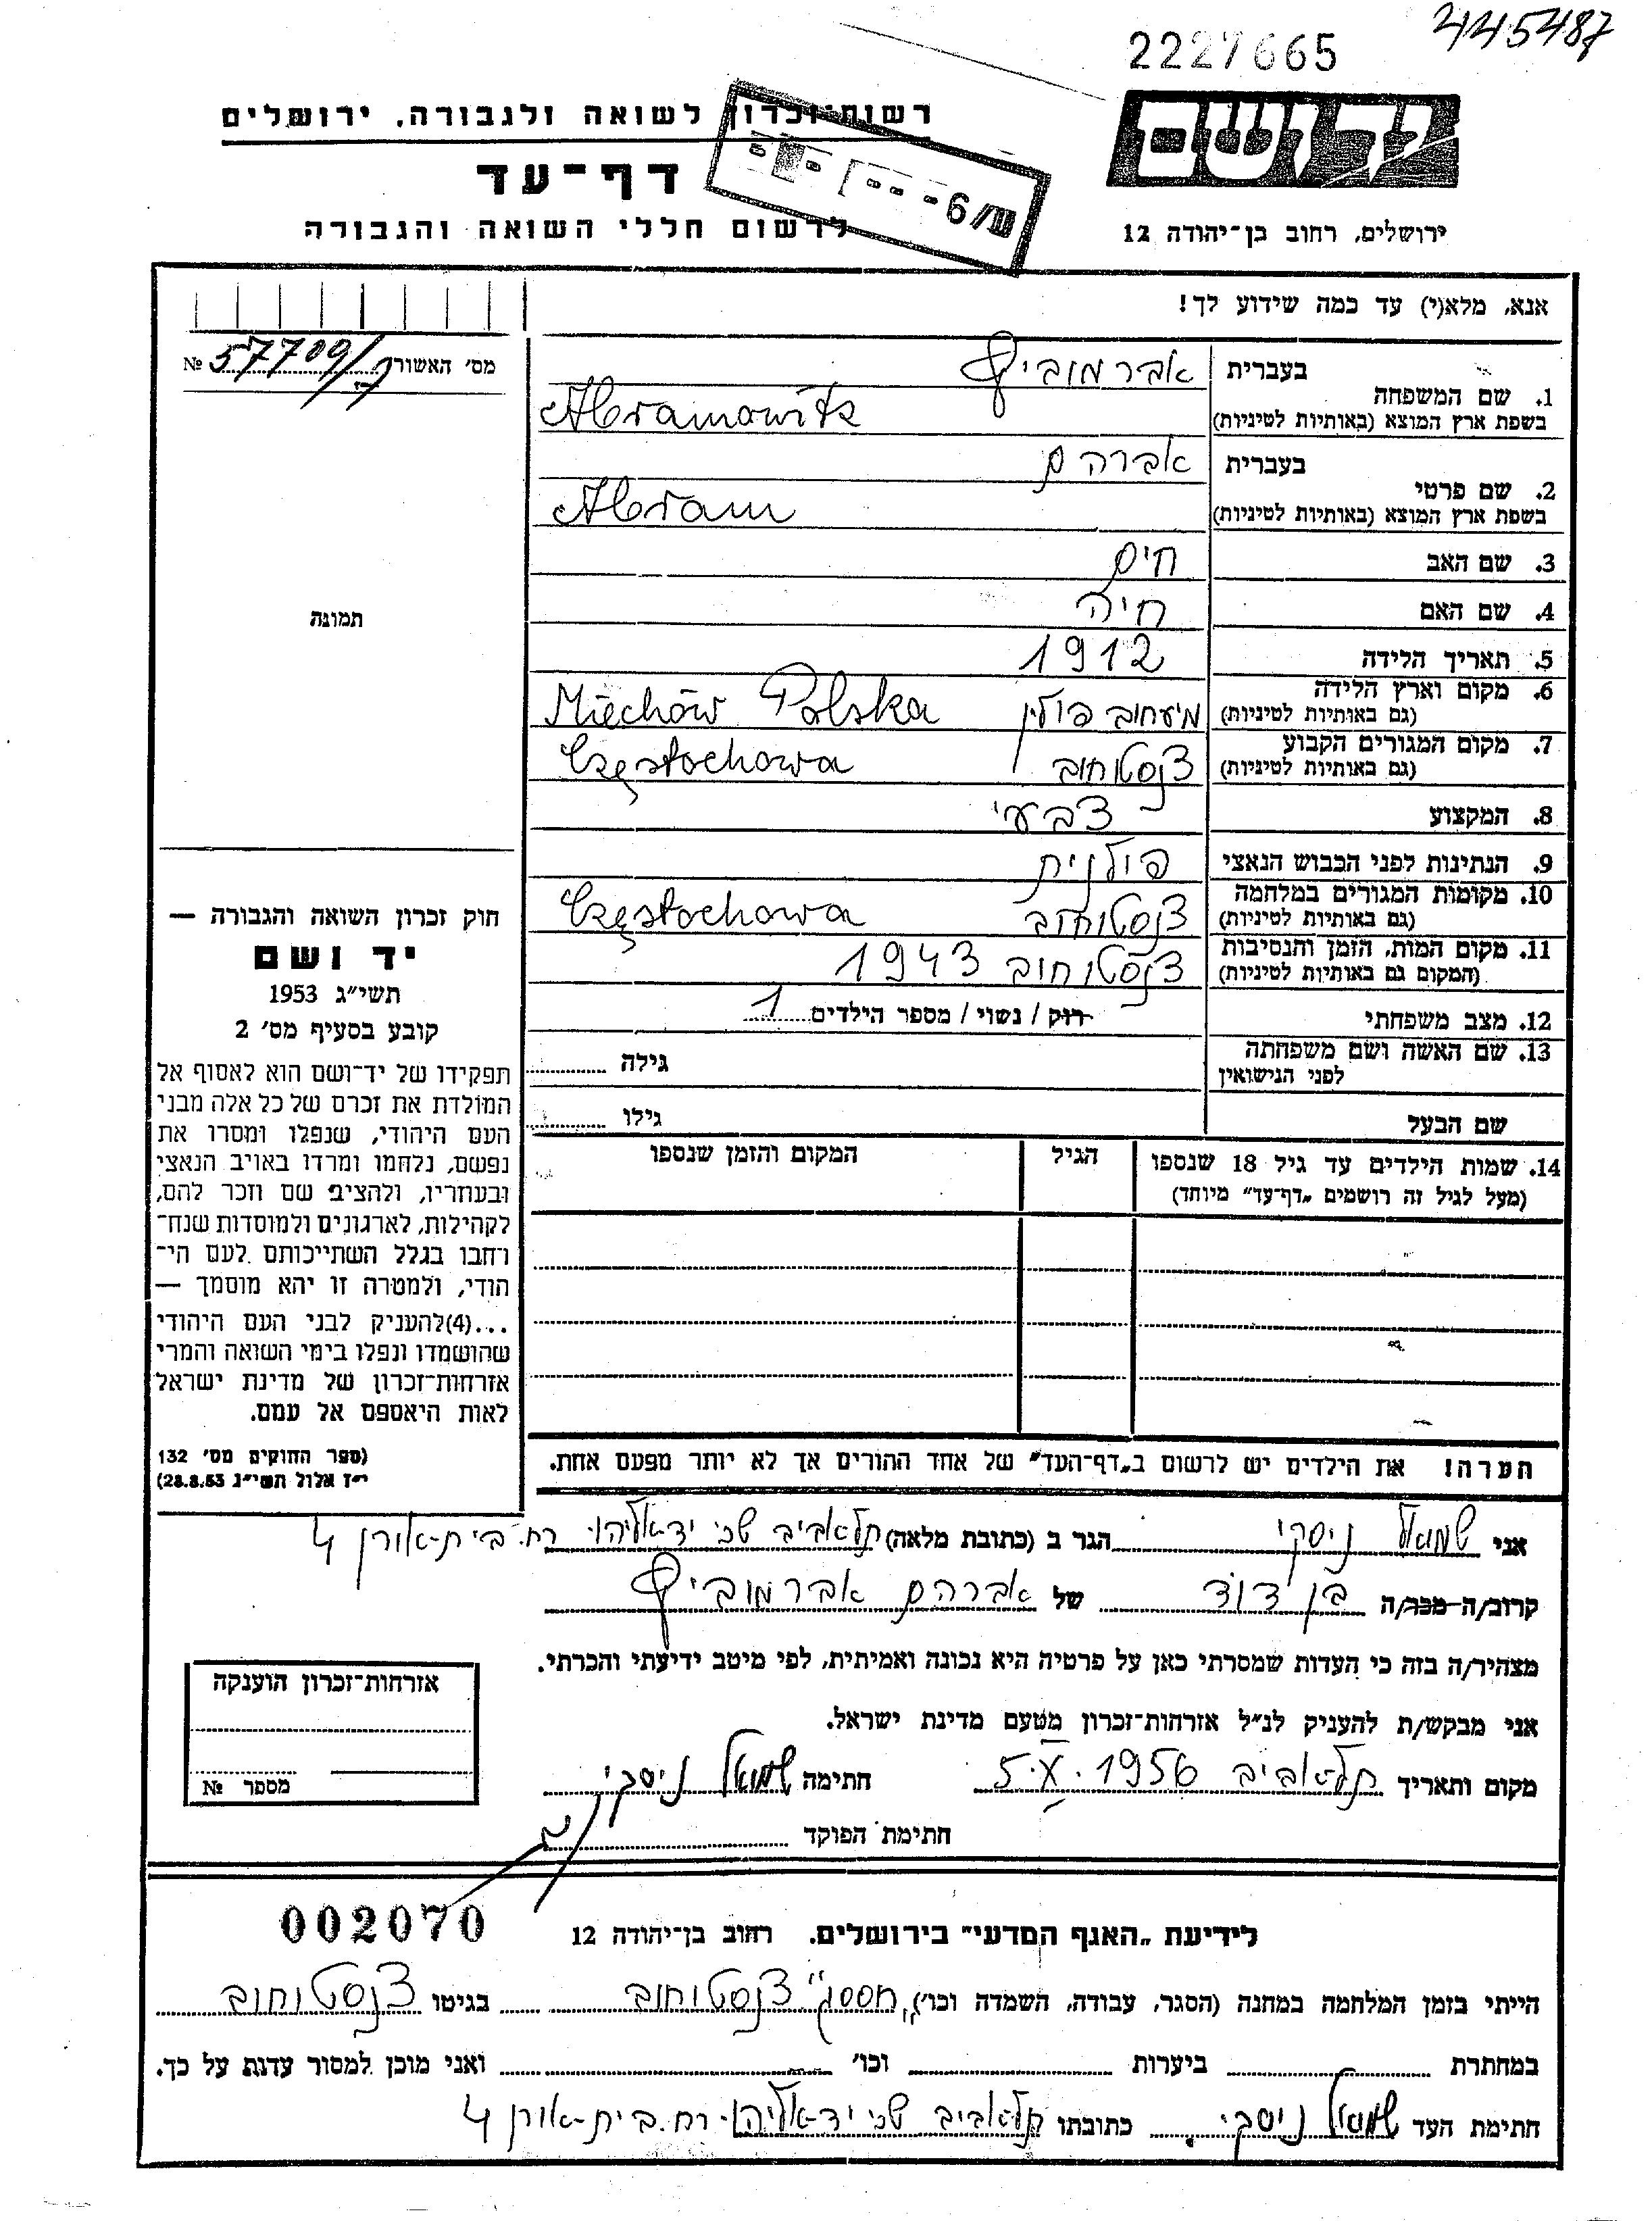 445487
2227665
יד ושם
רשות-זכרון לשואה ולגבורה, ירושלים
דף-עד
לרשום חללי השואה והגבורה
ירושלים, רחוב בן-יהודה 12
אנא, מלא(י) עד כמה שידוע לך!
מס׳ האשורר 57709/ №
1. שם המשפחה בעברית אברמוביץ
בשפת ארץ המוצא (באותיות לטיניות) Abramowitz
2. שם פרטי בעברית אברהם
בשפת ארץ המוצא (באותיות לטיניות) Abram
3. שם האב חיים
4. שם האם חיה
תמונה
5. תאריך הלידה 1912
6. מקום וארץ הלידה (גם באותיות לטיניות) מיעחוב פולין Miechów Polska
7. מקום המגורים הקבוע (גם באותיות לטיניות) צ'נסטוחוב Częstochowa
8. המקצוע צבעי
9. הנתינות לפני הכבוש הנאצי פולנית
10. מקומות המגורים במלחמה (גם באותיות לטיניות) צ'נסטוחוב Częstochowa
11. מקום המות, הזמן והנסיבות (המקום גם באותיות לטיניות) צ'נסטוחוב 1943
12. מצב משפחתי רוק / נשוי / מספר הילדים 1
13. שם האשה ושם משפחתה לפני הנישואין גילה
שם הבעל גילו
14. שמות הילדים עד גיל 18 שנספו הגיל המקום והזמן שנספו
(מעל לגיל זה רושמים „דף-עד" מיוחד)
חוק זכרון השואה והגבורה —
יד ושם
תשי״ג 1953
קובע בסעיף מס׳ 2
תפקידו של יד-ושם הוא לאסוף אל
המולדת את זכרם של כל אלה מבני
העם היהודי, שנפלו ומסרו את
נפשם, נלחמו ומרדו באויב הנאצי
ובעוזריו, ולהציב שם וזכר להם,
לקהילות, לארגונים ולמוסדות שנח-
רבו בגלל השתייכותם לעם הי-
הודי, ולמטרה זו יהא מוסמך —
...(4)להעניק לבני העם היהודי
שהושמדו ונפלו בימי השואה והמרי
אזרחות-זכרון של מדינת ישראל
לאות היאספם אל עמם.
(ספר החוקים מס׳ 132
י״ז אלול תשי״ג 28.8.53)
הערה! את הילדים יש לרשום ב„דף-העד" של אחד ההורים אך לא יותר מפעם אחת.
אני שמואל ניסקי הגר ב (כתובת מלאה) תל-אביב שכ׳ יד-אליהו רח. בית-אורן 4
קרוב/ה מכר/ה בן דוד של אברהם אברמוביץ
מצהיר/ה בזה כי העדות שמסרתי כאן על פרטיה היא נכונה ואמיתית, לפי מיטב ידיעתי והכרתי.
אני מבקש/ת להעניק לנ״ל אזרחות-זכרון מטעם מדינת ישראל.
מקום ותאריך תל-אביב 5.X.1956 חתימה שמואל ניסקי
חתימת הפוקד
אזרחות-זכרון הוענקה
מספר №
002070
לידיעת „האגף המדעי" בירושלים. רחוב בן-יהודה 12
הייתי בזמן המלחמה במחנה (הסגר, עבודה, השמדה וכו׳) „הססג" צ'נסטוחוב בגיטו צ'נסטוחוב
במחתרת ביערות וכו׳ ואני מוכן למסור עדות על כך.
חתימת העד שמואל ניסקי. כתובתו תל-אביב שכ׳ יד-אליהו. רח. בית-אורן 4